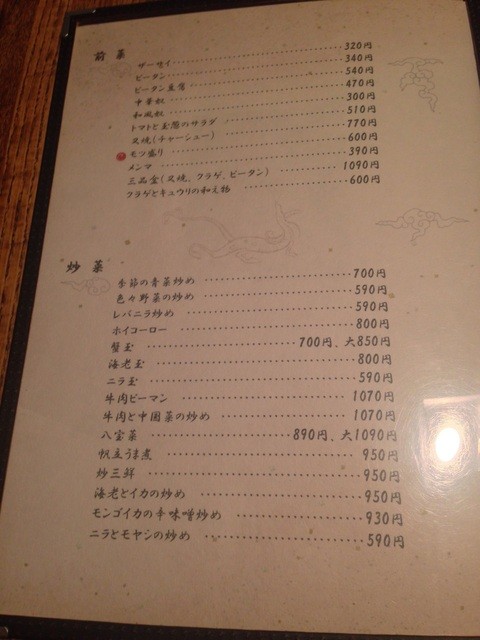 前菜
ザーサイ 320円
ピータン 340円
ピータン豆腐 540円
中華奴 470円
和風奴 300円
トマトと豆腐のサラダ 510円
叉焼(チャーシュー) 770円
モツ盛り 600円
メンマ 390円
三品盒(叉焼、クラゲ、ピータン) 1090円
クラゲとキュウリの和え物 600円
炒菜
季節の青菜炒め 700円
色々野菜の炒め 590円
レバニラ炒め 590円
ホイコーロー 800円
蟹玉 700円、大850円
海老玉 800円
ニラ玉 590円
牛肉ピーマン 1070円
牛肉と中国菜の炒め 1070円
八宝菜 890円、大1090円
帆立うま煮 950円
炒三鮮 950円
海老とイカの炒め 950円
モンゴイカの辛味噌炒め 930円
ニラとモヤシの炒め 590円